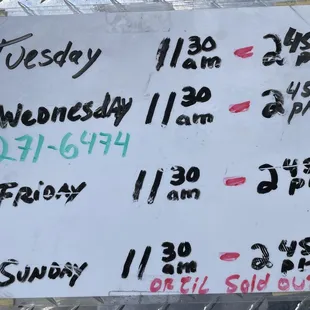 Tuesday 11 30 am - 2 45 p
Wednesday 11 30 am - 2 45 p
271-6474
Friday 11 30 am - 2 45 p
Sunday 11 30 am - 2 45 p
or til Sold Out